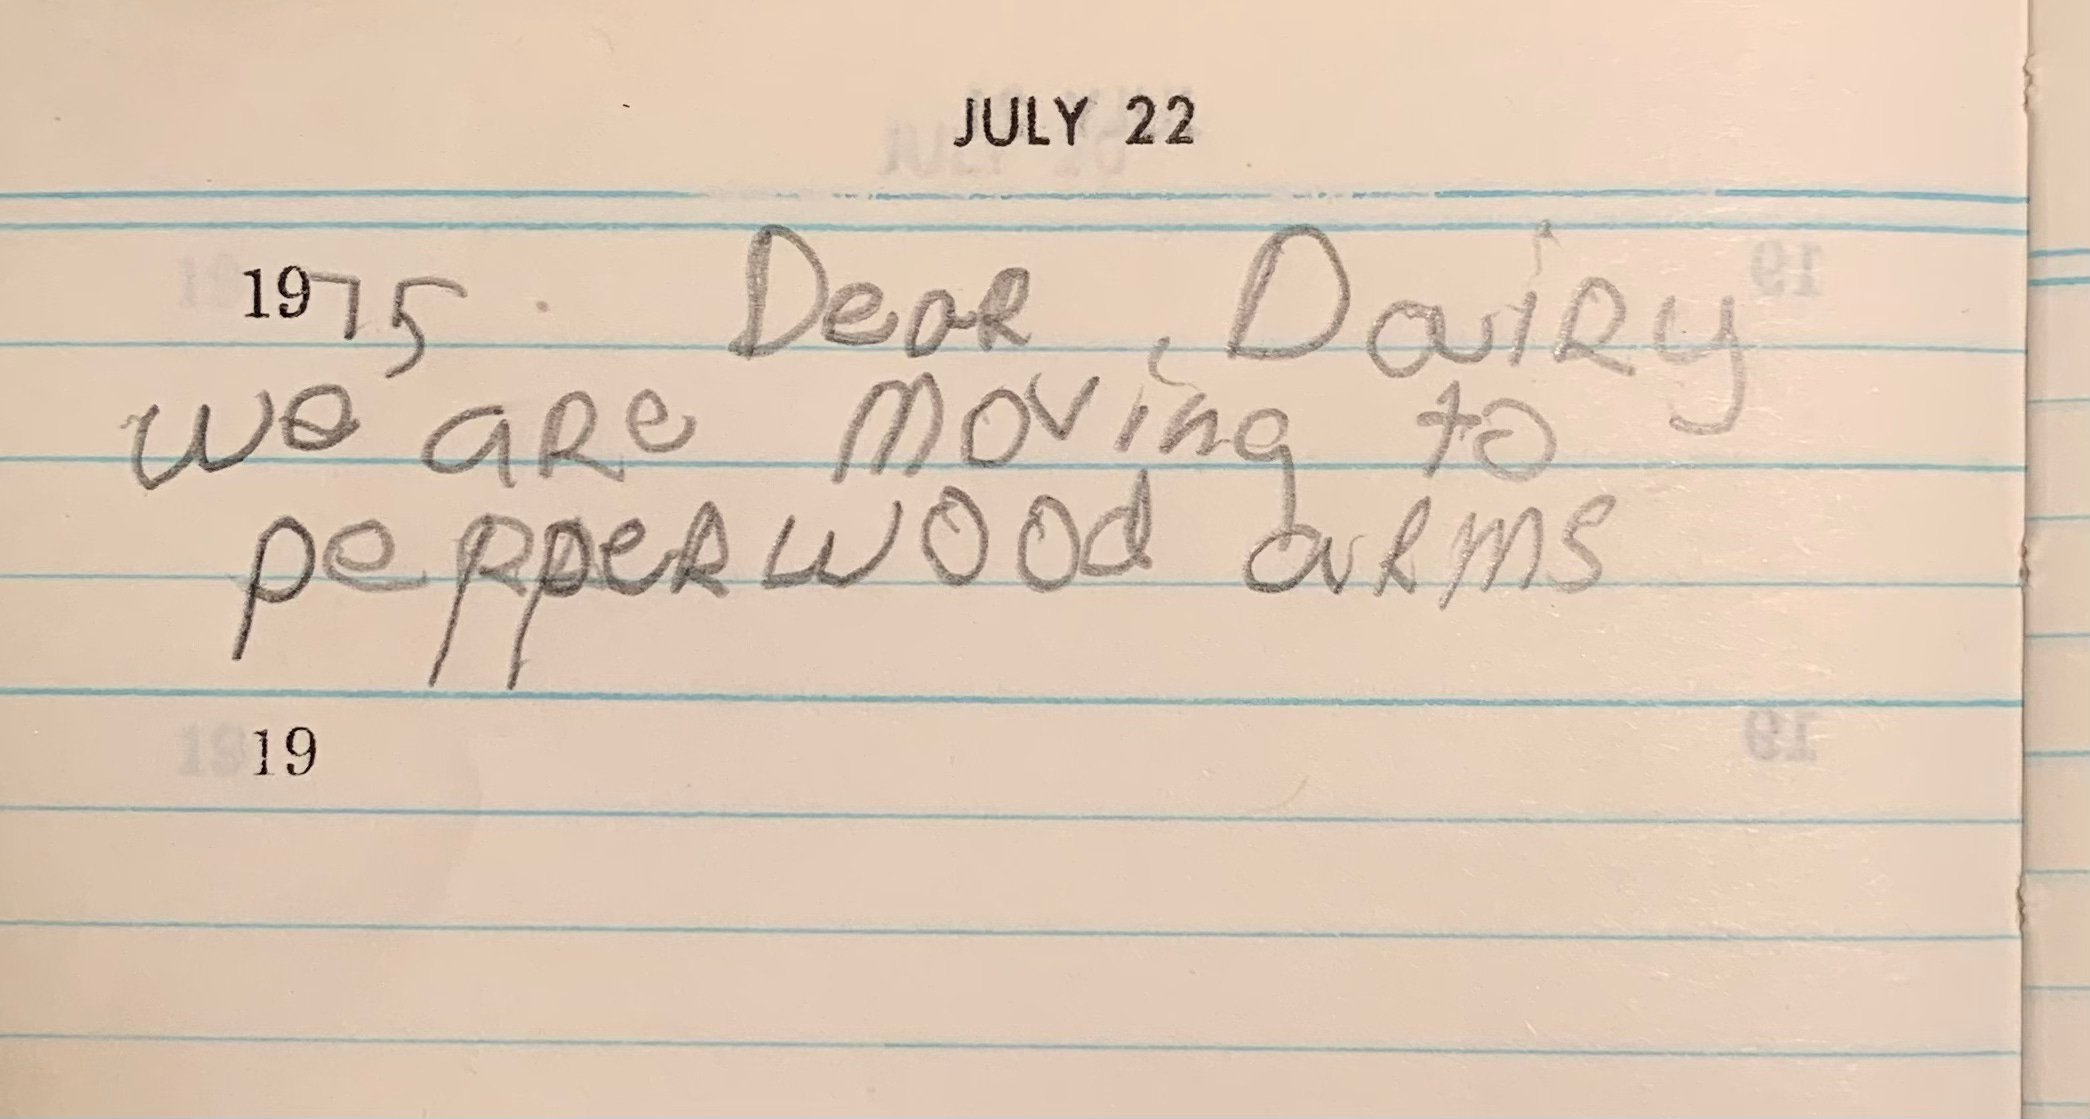 JULY 22
1975 Dear, Dairy
we are moving to
pepperwood arms
19